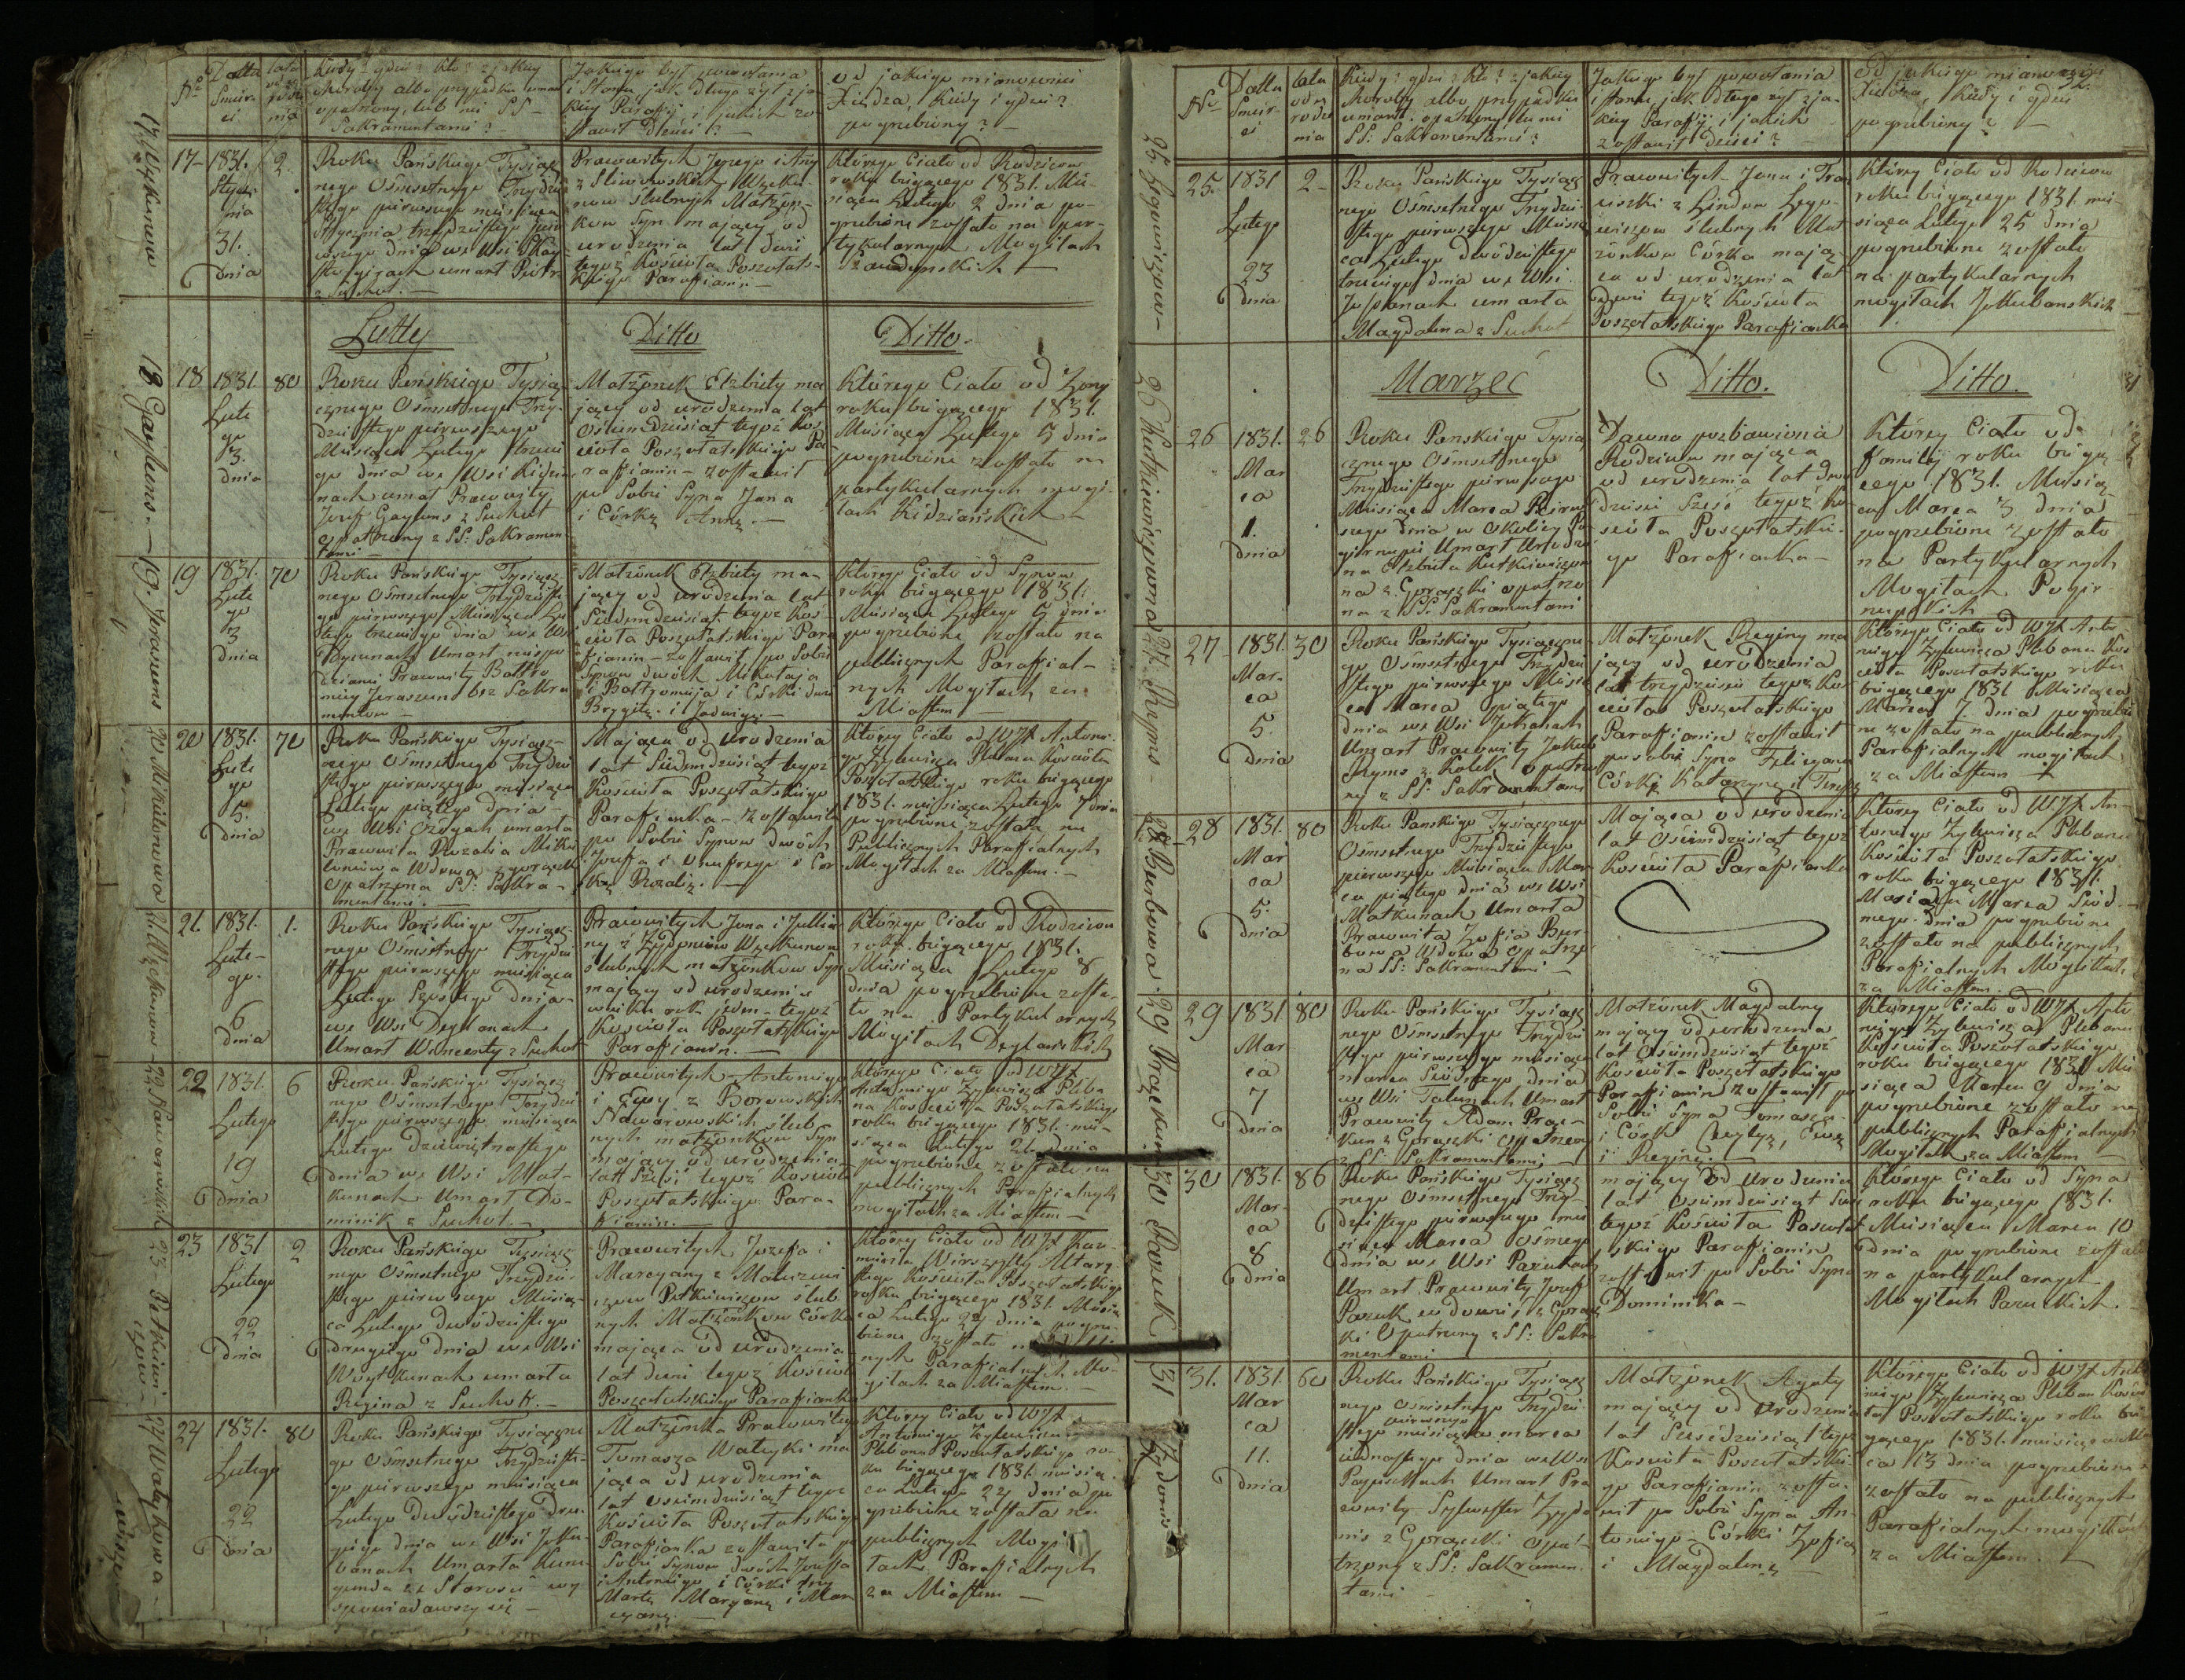 No
Datta
Smier
ci
lata
od u
rodze
nia
Kiedy? gdzie? kto? z jakiey
choroby albo przypadku umar
opatrzony, lub nie SS
Sakramentami?
Jakiego był powołania
i Stanu, jak długo żył z ja
kiey Parafij i jakich zo
stawił Dzieci?
Od jakiego mianowicie
Xiędza, Kiedy i gdzie?
pogrzebiony?
17
1831.
Stycz
nia
31.
Dnia
2.
Roku Pańskiego Tysiącz
nego Ośmsetnego Trzydzie
stego pierwszego miesiąca
Stycznia trzydziestego pier
wszego dnia we Wsi
umarł Piotr
z Suchot.
Prawowitych Jerzego i Any
z
now slubnych Małżon
kow Syn mający od
urodzenia lat dwie
tegoż Kościoła Poszołats
kiego Parafianin
Którego Ciało od Rodzicow
roku bieżącego 1831. Mie
siąca Lutego 2 dnia po
grzebione zostało na par
tykularnych Mogiłach
Lutty
Ditto
Ditto.
18
1831.
Lute
go
3.
dnia
80
Roku Pańskiego Tysią
cznego Ośmsetnego Trzy
dziestego pierwszego
Miesiąca Lutego trzeci
go dnia we Wsi Kidzia
nach umał Prawowity
Jozef Gayluns z Suchot
opatrzony z SS: Sakramen
tami
Małżonek Elzbiety ma
jący od urodzenia lat
Osiemdziesiąt tegoż Koś
cioła Poszołatskiego Pa
rafianin – zostawił
po Sobie Syna Jana
i Córkę Annę.
Którego Ciało od Żony
roku bieżącego 1831.
Miesiąca Lutego 5 dnia
pogrzebione zostało na
partykularnych mogi
łach Kidziańskich
19
1831.
Lute
go
3
dnia
70
Roku Pańskiego Tysiącz
nego Ośmsetnego Trzydzieste
go pierwszego Miesiąca Lu
tego trzeciego dnia we Wsi
Umarł niespo
dzianie Prawowity Bałtro
miey Jeraszuns bez Sakra
mentow
Małżonek Elzbiety ma
jący od urodzenia lat
Siedemdziesiąt tegoż Koś
cioła Poszołatskiego Para
fianin – zostawił po Sobie
Synow dwóch Mikołaja
i Bałtromieja i Córki dwie
Brygitę i Jadwigę
Którego Ciało od Synow
roku bieżącego 1831.
Miesiąca Lutego 5 dnia
pogrzebione zostało na
publicznych Parafial
nych Mogiłach za
Miastem
20
1831.
Lute
go
5.
Dnia
70
Roku Pańskiego Tysiącz
nego Ośmsetnego Trzydzie
stego pierwszego miesiąca
Lutego piątego dnia
we Wsi umarła
Prawowita Rozalia Miku
loniowa Wdowa z gorączki
opatrzona SS: Sakra
mentami.
Mająca od urodzenia
lat Siedemdziesiąt tegoż
Kościoła Poszołatskiego
Parafianka – zostawiła
po Sobie Synow dwóch
Jozefa i Onufrego i Cor
kę Rozalię.
Którey Ciało od WJX Antoni
go Zylewicza Plebana Kościoła
Poszołatskiego roku bieżącego
1831. miesiąca Lutego 7 dnia
pogrzebione zostało na
Publicznych Parafialnych
Mogiłach za Miastem.
21.
1831.
Lute
go.
6
dnia
1.
Roku Pańskiego Tysiącz
nego Ośmsetnego Trzydzie
stego pierwszego miesiąca
Lutego Szóstego dnia
we Wsi Deglanach
Umarł Wincenty z Suchot
Prawowitych Jana i Jullia
ny z Zydoniow Wżełkunow
slubnych małżonkow Syn
mający od urodzenia
wieku rok jeden – tegoż
Kościoła Poszołatskiego
Parafianin.
Którego Ciało od Rodzicow
roku bieżącego 1831.
Miesiąca Lutego 8
dnia pogrzebione zosta
ło na Partykularnych
Mogiłach Deglańskich
22
1831.
Lutego
19
dnia
6
Roku Pańskiego Tysiącz
nego Ośmsetnego Trzydzie
stego pierwszego miesiąca
Lutego dziewiętnastego
dnia we Wsi Mat
kunach Umarł Do
minik z Suchot.
Prawowitych Antoniego
i Ewy z Borowskich
Nawarowskich slub
nych małżonkow Syn
mający od urodzenia
lat Sześć tegoż Kościoła
Poszołatskiego Para
fianin.
Którego Ciało od WJX
Antoniego Zylewicza Pleba
na Kościoła Poszołatskiego
roku bieżącego 1831. mie
siąca Lutego dnia
pogrzebione zostało na
publicznych Parafialnych
mogiłach za Miastem
23
1831
Lutego
22
dnia
2
Roku Pańskiego Tysiącz
nego Ośmsetnego Trzydzie
stego pierwszego Miesią
ca Lutego dwódziestego
drugiego dnia we Wsi
Woytkunach umarła
Regina z Suchott.
Prawowitych Jozefa i
Maryanny z Matuzewi
czow Petkiewiczow slub
nych Małżonkow Córka
mająca od urodzenia
lat dwie tegoż Kościoła
Poszołatskiego Parafianka
Którey Ciało od WJX Kaz
mierza Wirszyłły Altarz
stego Kościoła Poszołatskiego
roku bieżącego 1831. Miesią
ca Lutego 24 dnia pogrze
bione zostało na publi
nych Parafialnych Mo
giłach za Miastem.
24
1831.
Lutego
22
dnia
80
Roku Pańskiego Tysiączne
go Ośmsetnego Trzydzieste
go pierwszego miesiąca
Lutego dwódziestego dru
giego dnia we Wsi Joku
banach Umarła Kune
gunda ze Starości wy
spowiadawszy się
Małżonka Prawowitego
Tomasza Wałeyki ma
jąca od urodzenia
lat osiemdziesiąt tegoż
Kościoła Poszołatskiego
Parafianka zostawiła po
Sobie Synow dwóch Jozefa
i Antoniego i Córki trzy
Martę Maryanę i Mar
cyanę.
Którey Ciało od WJX
Antoniego Zylewicza
Plebana Poszołatskiego ro
ku bieżącego 1831. miesią
ca Lutego 24 dnia po
grzebione zostało na
publicznych Mogi
łach Parafialnych
za Miastem
18 Gayluns.
19. Jeraszuns
20 Mikulonowa
21. Wżełkunow
22 Nawarowskich
23 Petkiewi
czow
24 Wałeykowa
No
Datta
Smier
ci
lata
od u
rodze
nia
Kiedy? gdzie? kto? z jakiey
choroby albo przypadku
umarł, opatrzony lub nie
SS: Sakramentami?
Jakiego był powołania
i Stanu, jak długo żył z ja
kiey Parafij i jakich
zostawił dzieci?
Od jakiego mianowicie
Xiędza, kiedy i gdzie
pogrzebiony?
25.
1831
Lutego
23
Dnia
2
Roku Pańskiego Tysiącz
nego Ośmsetnego Trzydzie
stego pierwszego Miesią
ca Lutego dwódziestego
trzeciego dnia we Wsi
Jokubanach umarła
Magdalena z Suchot
Prawowitych Jana i Fran
ciszki z Lindow Łego
wiczow slubnych Mał
żonkow Córka mają
ca od urodzenia lat
Dwie tegoż Kościoła
Poszołatskiego Parafianka
Którey Ciało od Rodzicow
roku bieżącego 1831 mie
siąca Lutego 25 dnia
pogrzebione zostało
na partykularnych
mogiłach Jokubanskich
Marzec
Ditto.
Ditto.
26
1831.
Mar
ca
1.
Dnia
26
Roku Panskiego Tysią
cznego Ośmsetnego
Trzydziestego pierwszego
Miesiąca Marca Pierw
szego dnia w Okolicy Po
girnupie Umarł Urodzo
na Elzbieta Rutkiewiczow
na z Gorączki opatrzo
na z SS. Sakramentami
Dawno pozbawiona
Rodzicow mająca
od urodzenia lat dwa
dzieście Sześć tegoż Ko
ścioła Poszołatskie
go Parafianka
Którey Ciało od
familij roku bieżą
cego 1831. Miesią
ca Marca 3 dnia
pogrzebione zostało
na Partykularnych
Mogiłach Pogir
nupskich
27
1831.
Mar
ca
5.
Dnia
30
Roku Pańskiego Tysiączne
go Ośmsetnego Trzydzie
stego pierwszego Miesią
ca Marca piątego
dnia we Wsi
Umarł Prawowity Jakub
Ryms z Kolek opatrzo
ny z SS. Sakramentami
Małżonek Reginy ma
jący od urodzenia
lat trzydzieści tegoż Koś
cioła Poszołatskiego
Parafianin zostawił
po sobie Syna Felicyana
Córki Katarzynę i Teresę
Którego Ciało od WJX Anto
niego Zylewicza Plebana Koś
cioła Poszołatskiego roku
bieżącego 1831 Miesiąca
Marca 7 dnia pogrzebio
ne zostało na publicznych
Parafialnych mogiłach
za Miastem
28
1831.
Mar
ca
5.
Dnia
80
Roku Panskiego Tysiącznego
Ośmsetnego Trzydziestego
pierwszego Miesiąca Mar
ca piątego dnia we Wsi
Matkunach Umarła
Prawowita Zofia Bur
bowa Wdowa opatrzo
na SS: Sakramentami
Mająca od urodzenia
lat Ośiemdziesiąt tegoż
Kościoła Parafianka
Którey Ciało od WJX An
toniego Zylewicza Plebana
Kościoła Poszołatskiego
roku bieżącego 1831.
Miesiąca Marca Siód
mego dnia pogrzebione
zostało na publicznych
Parafialnych Mogiłach
za Miastem.
29
1831
Mar
ca
7
Dnia
80
Roku Pańskiego Tysiącz
nego Ośmsetnego Trzydzie
stego pierwszego miesiąca
marca Siódmego dnia
we Wsi Talunach Umarł
Prawowity Adam Prącz
kun z Gorączki opatrzony
z SS. Sakramentami
Małżonek Magdaleny
mający od urodzenia
lat Ośiemdziesiąt tegoż
Kościoła Poszołatskiego
Parafianin zostawił po
Sobie Syna Tomasza
i Córk Cecylyę, Ewę
i Reginę
Którego Ciało od WJX Anto
niego Zylewicza Plebana
Kościoła Poszołatskiego
roku bieżącego 1831 Mie
siąca Marca 9 dnia
pogrzebione zostało na
publicznych Parafialnych
Mogiłach za Miastem
30
1831.
Mar
ca
8
dnia
86
Roku Pańskiego Tysiącz
nego Ośmsetnego Trzy
dziestego pierwszego mie
siąca Marca Osmego
dnia we Wsi Paziukach
Umarł Prawowity Jozef
Pazuk wdowiec z Gorącz
ki Opatrzony z SS: Sakra
mentami
mający od Urodzenia
lat Osiemdziesiąt Sześć
tegoż Kościoła Poszołat
skiego Parafianin
zostawił po Sobie Syna
Dominika
Którego Ciało od Syna
roku bieżącego 1831.
Miesiąca Marca 10
Dnia pogrzebione zostało
na partykularnych
Mogiłach Pazukich.
31.
1831.
Mar
ca
11.
dnia
60
Roku Pańskiego Tysiącz
nego Osmsetnego Trzydzie
pierwszego
stego miesiąca marca
iednastego dnia we Wsi
Umarł Pra
wowity Sylwester Zydo
nis z Gorączki opa
trzony z SS: Sakramen
tami
Małżonek Agaty
mający od Urodzenia
lat Sześćdziesiąt tegoż
Kościoła Poszołatskie
go Parafianin zosta
wił po Sobie Syna An
toniego Córki Zofią
i Magdalenę
Którego Ciało od WJX Anto
niego Zylewicza Pleban Kości
oła Poszołatskiego roku bie
gącego 1831. miesiąca Mar
ca 13 dnia pogrzebione
zostało na publicznych
Parafialnych mogiłach
za Miastem.
25 Łegowiczow
26 Rutkiewiczowna
27 Ryms
28 Burbowa.
29 Prączkun
30 Pazuk
31 Zydonis